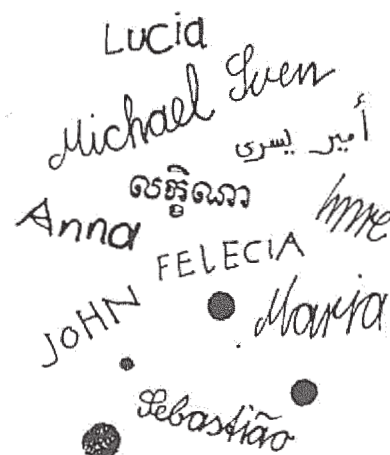 Lucia
Michael Sven
أمير يسرى
លក្ខិណា
Anna
Imre
FELECIA
JOHN
Maria
Sebastião